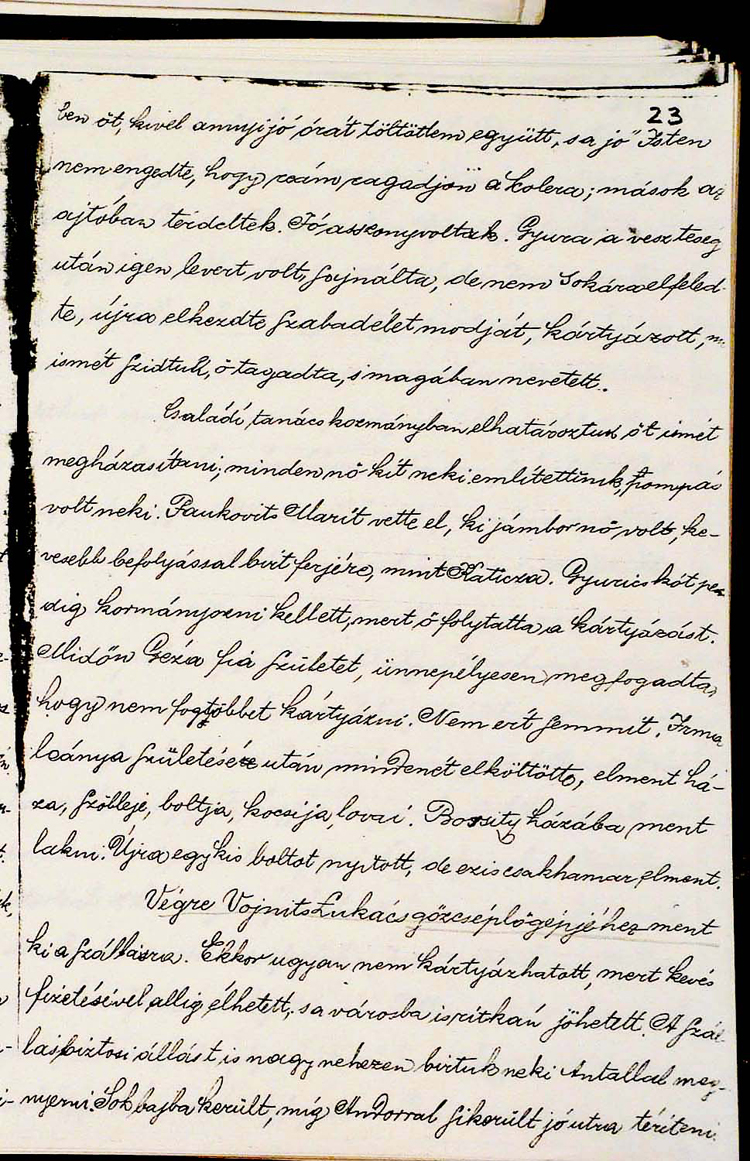 23
ben őt, kivel annyi jó órát töltöttem együtt, s a jó Isten
nem engedte, hogy reám ragadjon a kolera; mások az
ajtóban térdeltek. Jó asszony voltak. Gyura a veszteség
után igen levert volt, sajnálta, de nem sokára elfeled-
te, újra elkezdte szabad élet modját, kártyázott, mi
ismét szidtuk, ő tagadta, s magában nevetett.
Családi tanács kozmányban elhatároztuk őt ismét
megházasitani; minden nő kit neki emlitettünk, pompás
volt neki. Paukovits Marit vette el, ki jámbor nő volt, ke-
vesebb befolyással birt ferjére, mint Katicza. Gyuricskót pe-
dig kormányozni kellett, mert ő folytatta a kártyázást.
Midőn Géza fia született, ünnepélyesen megfogadta,
hogy nem fog többet kártyázni. Nem ért semmit. Irma
leánya születésére után mindenét elköltötte, elment há-
za, szőlleje, boltja, kocsija, lovai. Bossity házába ment
lakni. Újra egy kis boltot nyitott, de ez is csakhamar elment.
Végre Vojnits Lukács gőzcséplőgépjéhez ment
ki a szállásra. Ekkor ugyan nem kártyázhatott, mert kevés
fizetésével allig élhetett, s a városba is ritkán jöhetett. A szál-
lásbiztosi állást is nagy nehezen birtuk neki Antallal meg-
nyerni. Sok bajba került, mig Andorral sikerült jó utra tériteni.